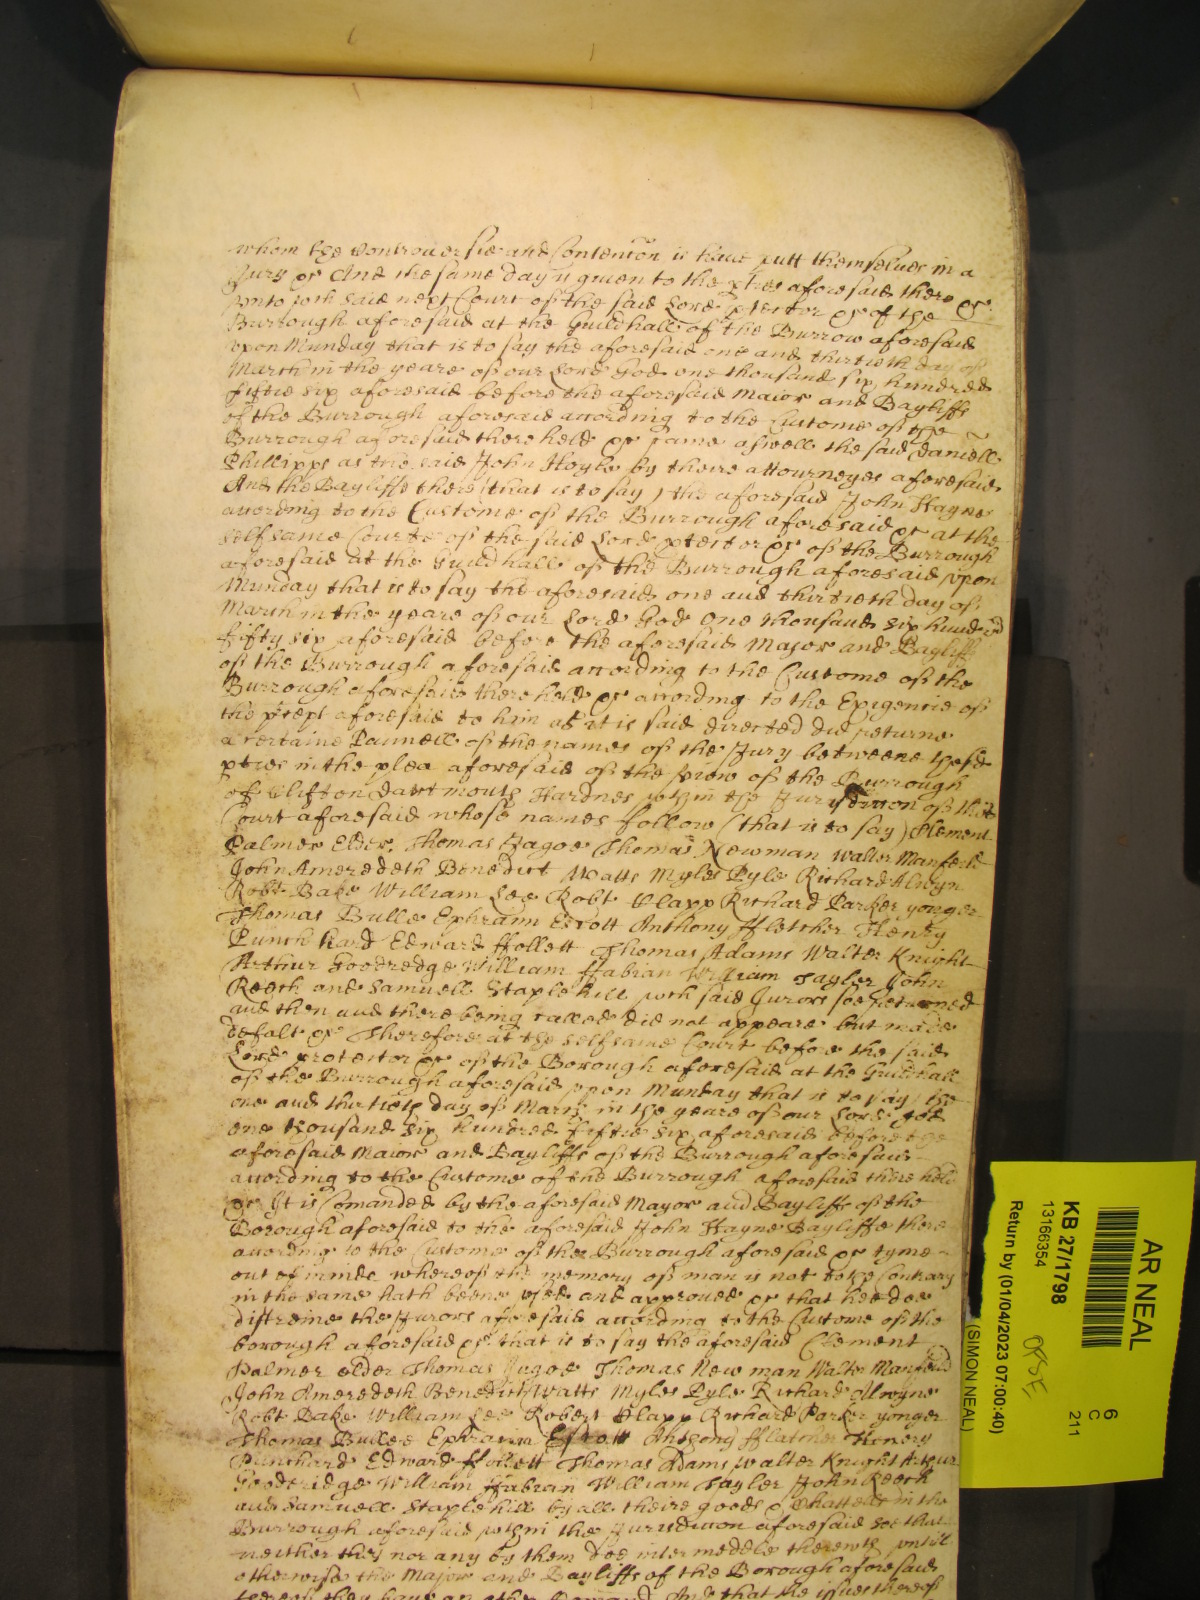 whom the Controversie and Contencon is have putt themselves in a
Jury &c And the same day is given to the pties aforesaid there &c
Unto wch said next Court of the said Lord ptector &c of the
Burrough aforesaid at the Guildhall of the Burrow aforesaid
upon Munday that is to say the aforesaid one and thirtieth day of
March in the yeare of our Lord God one thousand six hundred
fiftie six aforesaid before the aforesaid Maior and Bayliffs
of the Burrough aforesaid according to the Custome of the
Burrough aforesaid there held &c came aswell the said Daniell
Phillipps as the said John Hoyle by theire attourneyes aforesaid
And the Bayliffe there (that is to say) the aforesaid John Hayne
according to the Custome of the Burrough aforesaid &c at the
selfsame Courte of the said Lord ptector &c of the Burrough
aforesaid at the Guildhall of the Burrough aforesaid upon
Munday that is to say the aforesaid one and thirtieth day of
March in the yeare of our Lord God One thousand six hundred
fifty six aforesaid before the aforesaid Major and Bayliffs
of the Burrough aforesaid according to the Custome of the
Burrough aforesaid there held &c according to the Exigencie of
the pcept aforesaid to him as it is said directed did returne
a certaine Pannell of the names of the Jury betweene the sd
pties in the plea aforesaid of the view of the Burrough
of Clifton Dartmouth Hardnes wthin the Jurisdiccon of this
Court aforesaid whose names follow (that is to say) Clement
Palmer Elder, Thomas Thomas Newman Walter Manfeild
John Ameredeth Benedict Watts Myles Pyle Richard Alwyn
Robt Bake William Lee Robt Clapp Richard Parker yonger
Thomas Bulle Ephraim Escott Anthony ffletcher Henry
Punchard Edward ffollett Thomas Adams Walter Knight
Arthur Goodredge William ffabian William Tayler John
Roech and Samuell Staplehill wch said Jurors soe Returned
and then and there being called did not appeare but made
defalt &c Therefore at the selfsame Court before the said
Lord protector &c of the Borough aforesaid at the Guildhall
of the Burrough aforesaid upon Munday that is to say the
one and thirtieth day of March in the yeare of our Lord God
one thousand six hundred fiftie six aforesaid before the
aforesaid Maior and Bayliffs of the Burrough aforesaid
according to the Custome of the Burrough aforesaid there held
&c It is Comanded by the aforesaid Mayor and Bayliffs of the
Borough aforesaid to the aforesaid John Hayne Bayliffe there
according to the Custome of the Burrough aforesaid &c tyme
out of minde whereof the memory of man is not to the Contrary
in the same hath beene used and approved &c that hee doe
distreine the Jurors aforesaid according to the Custome of the
borough aforesaid &c that is to say the aforesaid Clement
Palmer elder Thomas Thomas Newman Walter Manfeild
John Ameredeth Benedict Watts Myles Pyle Richard Alwyne
Robt Bake William Lee Robert Clapp Richard Parker yonger
Thomas Bullee Ephraim Escott Anthony fflatcher Henery
Punchard Edward ffollett Thomas Adams Walter Knight Arthur
Gooderidge William ffabian William Tayler John Roech
and Samuell Staplehill by all theire goods & Chattells in the
Burrough aforesaid wthin the Jurisdiccon aforesaid soe that
neither they nor any by them doe intermeddle therewth untill
otherwise the Major and Bayliffs of the Borough aforesaid
thereof they have another Comand And that the issues thereof
AR NEAL
KB 27/1798
13166354
Return by (01/04/2023 07:00:40)
(SIMON NEAL)
6
C
211